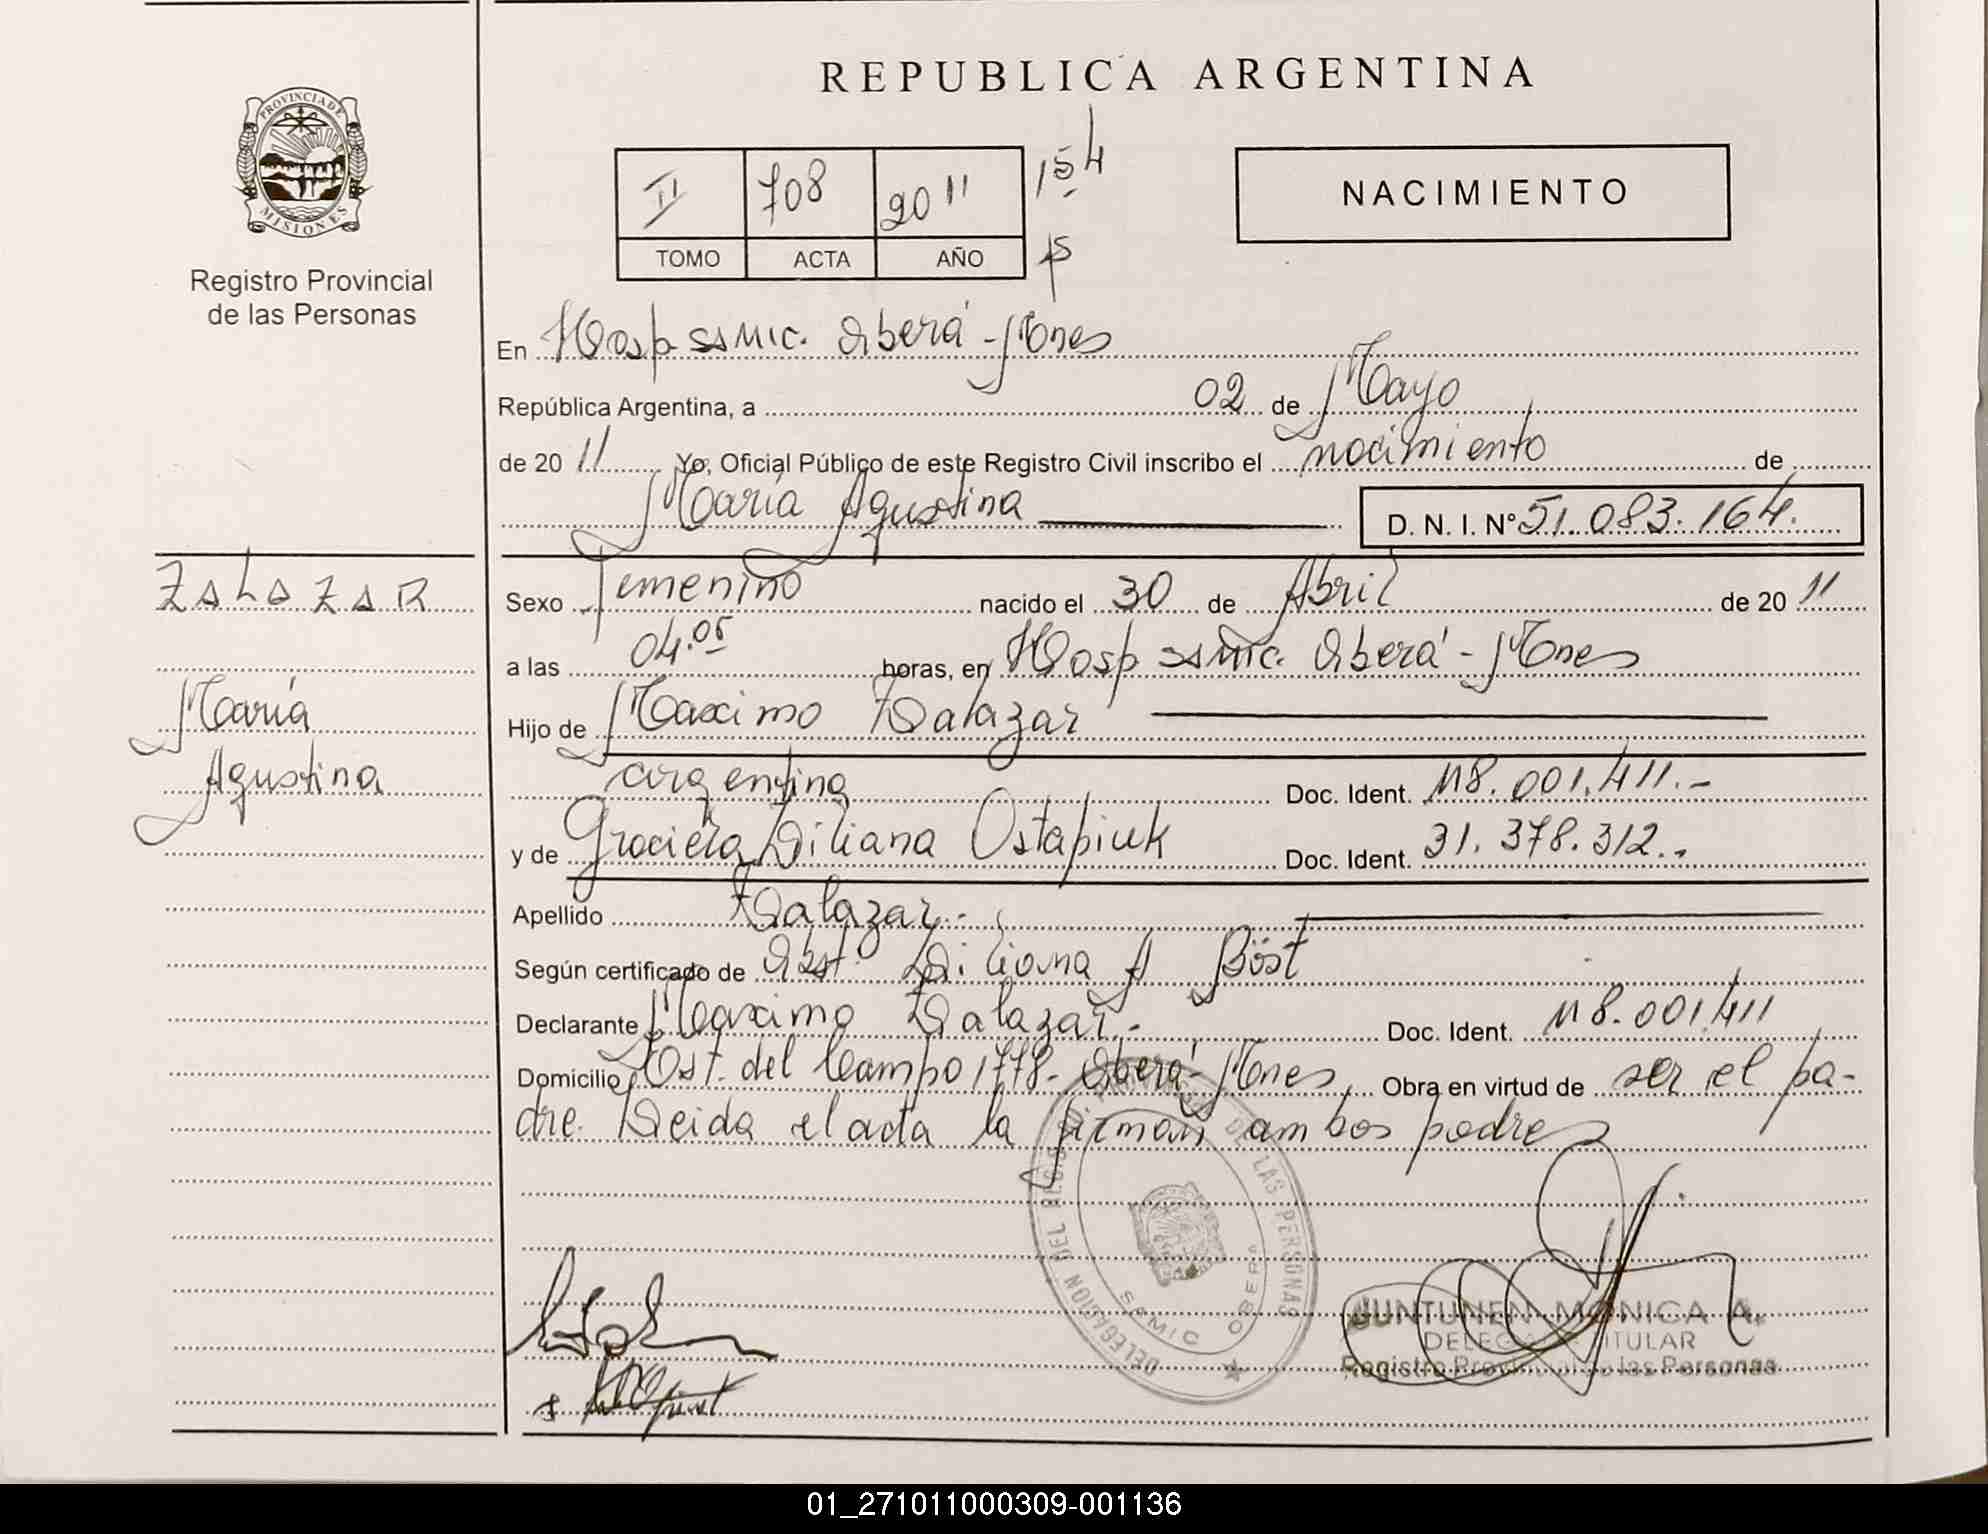 REPUBLICA ARGENTINA
PROVINCIA DE
MISIONES
Registro Provincial
de las Personas
II 708 2011 154
TOMO ACTA AÑO
NACIMIENTO
En Hosp ssmic. Oberá - Mnes
República Argentina, a 02 de Mayo
de 20 11 Yo, Oficial Público de este Registro Civil inscribo el nacimiento de
María Agustina D. N. I. N° 51.083.164.
ZALAZAR
María
Agustina
Sexo Femenino nacido el 30 de Abril de 20 11
a las 04.05 horas, en Hosp ssmic. Oberá - Mnes
Hijo de Maximo Zalazar
argentina Doc. Ident. M8.001.411.-
y de Graciela Liliana Ostapiuk Doc. Ident. 31.378.312.-
Apellido Zalazar.-
Según certificado de Obst. Liliana A Böst
Declarante Maximo Zalazar.- Doc. Ident. M8.001.411
Domicilio Est. del Campo 1778- Oberá - Mnes Obra en virtud de ser el pa-
dre. Leida el acta la firman ambos padres
DELEGACION DEL REGISTRO DE LAS PERSONAS
SEMIC OBERA
JUNTUNEN MONICA A.
DELEGADA TITULAR
Registro Provincial de las Personas
01_271011000309-001136